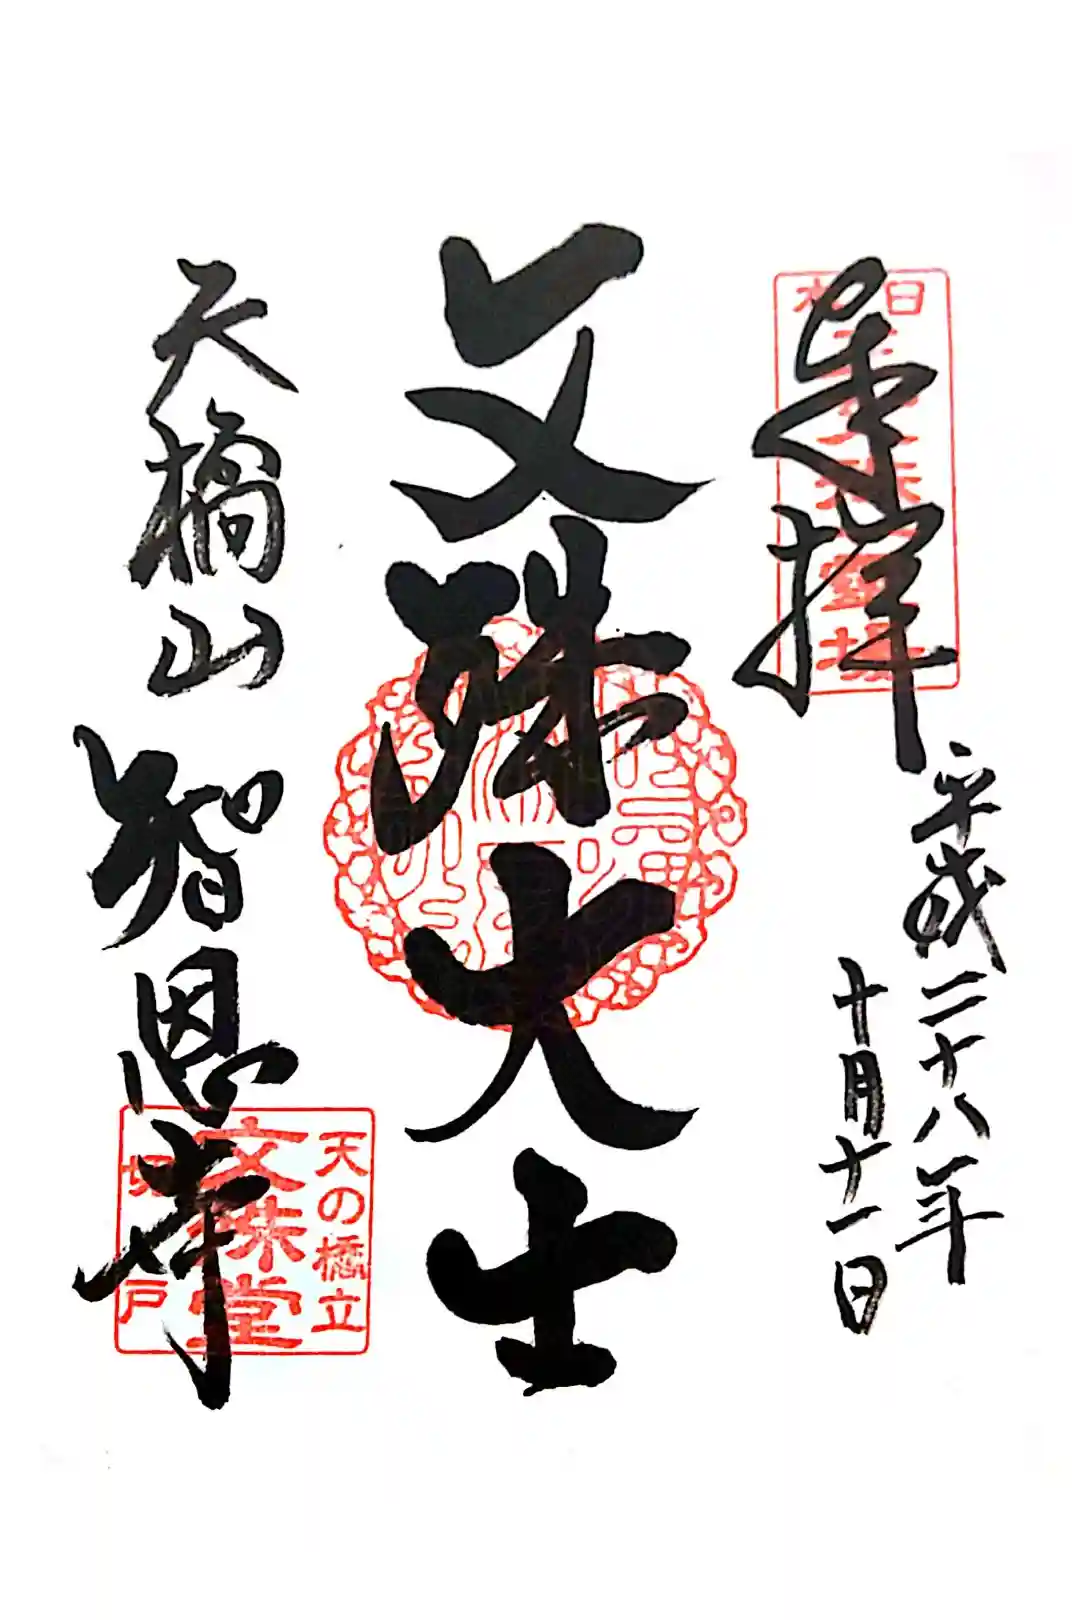 奉拝
平成二十八年
十月十一日
文殊大士
天橋山
智恩寺
天の橋立
文殊堂
切戸